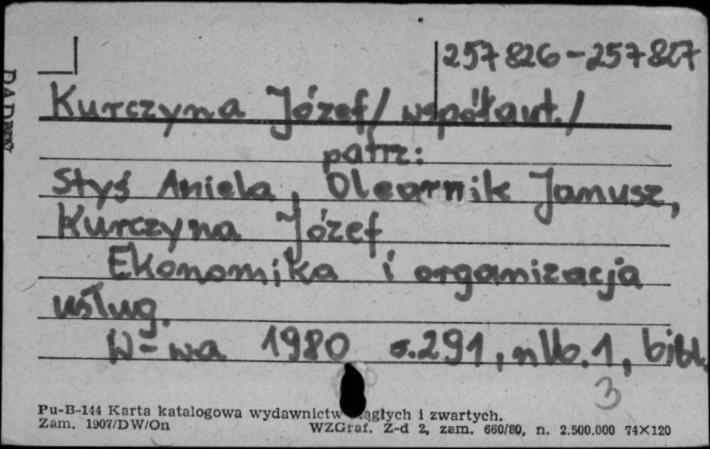 257 826 - 257 827
Kurczyna Józef / współaut. /
patrz:
Styś Aniela, Olearnik Janusz,
Kurczyna Józef
Ekonomika i organizacja
usług.
W-wa 1980 s. 291, nlb. 1, bibl.
3
Pu-B-144 Karta katalogowa wydawnictw ciągłych i zwartych.
Zam. 1907/DW/On WZGraf. Z-d 2, zam. 660/80, n. 2.500.000 74×120